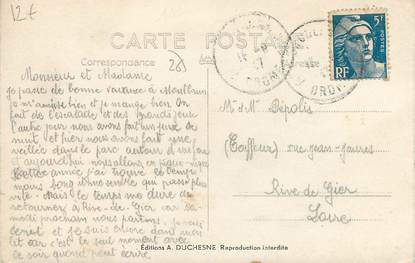 12 €
CARTE POSTALE
Correspondance
263
Adresse
DROME
DROME
5F
POSTES
RF
Monsieur et Madame
Je passe de bonne vacance à Montbrun
je m'amuse bien et je mange bien. On
fait de l'escalade et des grands jeux
l'autre jour nous avons fait un jeux de
nuit et hier nous avons fait une
veillée dans le parc autour d'un feu
et aujourd'hui nous allons en pique-nique
Cette année j'ai trouvé le temps
moins long il me semble qui passe plus
vite. Mais le temps me dure de
retourner à Rive-de-Gier car sa-
medi prochain nous partons. Je vous
écrit et je suis encore dans mon
lit car c'est le seul moment avec
le soir quand peut écrire
M. et Mme Dépolis
(Coiffeur) rue Jean-Jaures
Rive de Gier
Loire
Éditions A. DUCHESNE Reproduction interdite